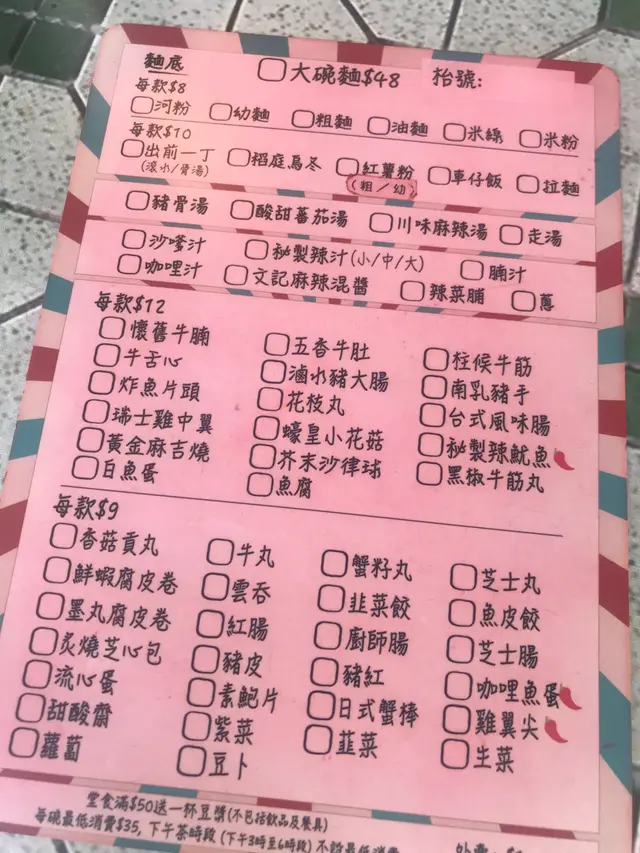 麵底 大碗麵$48 枱號:
每款$8
河粉 幼麵 粗麵 油麵 米線 米粉
每款$10
出前一丁 稻庭烏冬 紅薯粉 車仔飯 拉麵
(滾水/骨湯) (粗/幼)
豬骨湯 酸甜蕃茄湯 川味麻辣湯 走湯
沙嗲汁 秘製辣汁(小/中/大) 腩汁
咖哩汁 文記麻辣混醬 辣菜脯 蔥
每款$12
懷舊牛腩 五香牛肚 柱候牛筋
牛舌心 滷水豬大腸 南乳豬手
炸魚片頭 花枝丸 台式風味腸
瑞士雞中翼 蠔皇小花菇 秘製辣魷魚
黃金麻吉燒 芥末沙律球 黑椒牛筋丸
白魚蛋 魚腐
每款$9
香菇貢丸 牛丸 蟹籽丸 芝士丸
鮮蝦腐皮卷 雲吞 韭菜餃 魚皮餃
墨丸腐皮卷 紅腸 廚師腸 芝士腸
炙燒芝心包 豬皮 豬紅 咖哩魚蛋
流心蛋 素鮑片 日式蟹棒 雞翼尖
甜酸齋 紫菜 韭菜 生菜
蘿蔔 豆卜
堂食滿$50送一杯豆漿(不包括飲品及餐具)
每碗最低消費$35, 下午茶時段 (下午3時至6時段) 不設最低消費